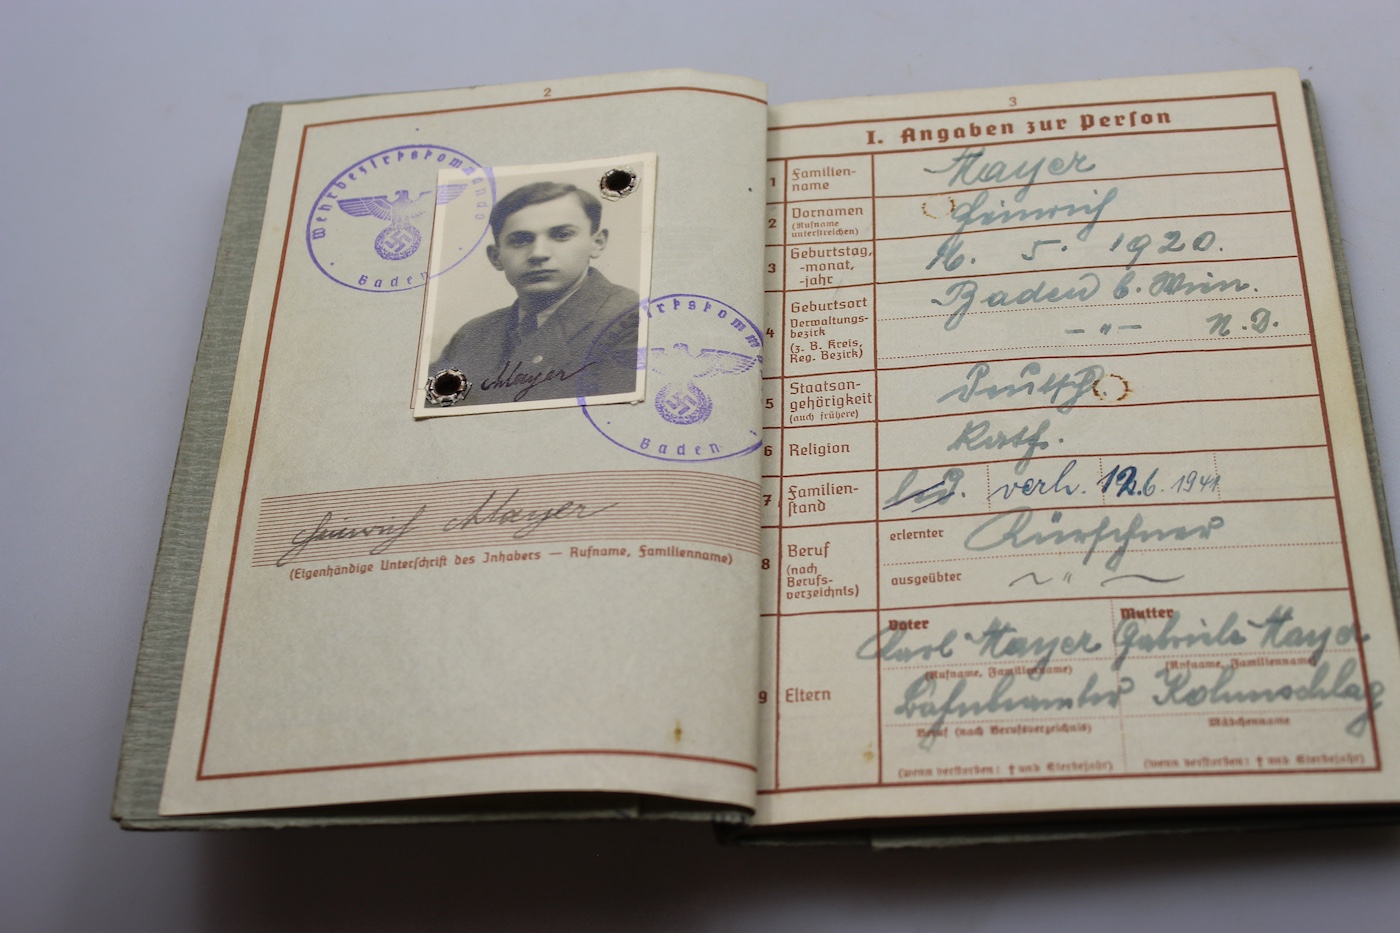 2
Wehrbezirkskommando
Baden
Mayer
Baden
Heinrich Mayer
(Eigenhändige Unterschrift des Inhabers — Rufname, Familienname)
3
I. Angaben zur Person
1 Familien-
name
Mayer
2 Vornamen
(Rufname
unterstreichen)
Heinrich
3 Geburtstag,
-monat,
-jahr
16. 5. 1920.
4 Geburtsort
Verwaltungs-
bezirk
(z. B. Kreis,
Reg. Bezirk)
Baden b. Wien.
— " — N. D.
5 Staatsan-
gehörigkeit
(auch frühere)
Deutsch.
6 Religion
Kath.
7 Familien-
stand
led. verh. 12.6. 1941
8 Beruf
(nach
Berufs-
verzeichnis)
erlernter Kürschner
ausgeübter ~ " ~
9 Eltern
Vater Mutter
Karl Mayer Gabriele Mayer
(Rufname, Familienname) (Rufname, Familienname)
Kolmschlag
Beruf (nach Berufsverzeichnis) Mädchenname
(wenn verstorben: † und Sterbejahr) (wenn verstorben: † und Sterbejahr)